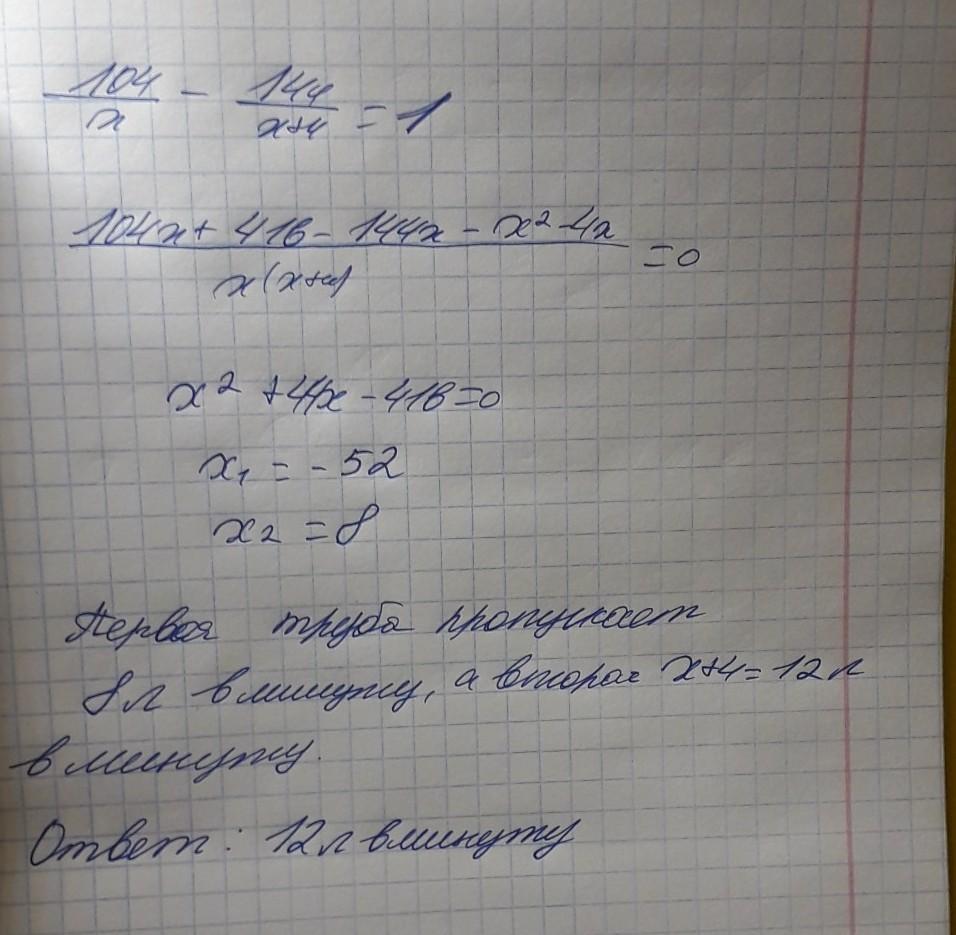 104/x - 144/x+4 = 1
104x + 416 - 144x - x² - 4x / x(x+4) = 0
x² + 44x - 416 = 0
x₁ = - 52
x₂ = 8
Первая труба пропускает
8л в минуту, а вторая x+4=12л
в минуту.
Ответ: 12л в минуту